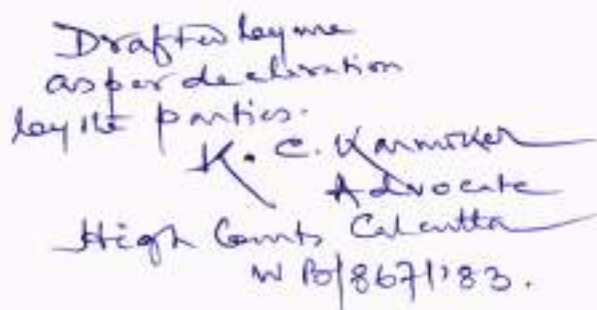 Drafted by me
as per declaration
by the parties.
K. C. Karmoker
Advocate
High Court, Calcutta
WB/867/'83.